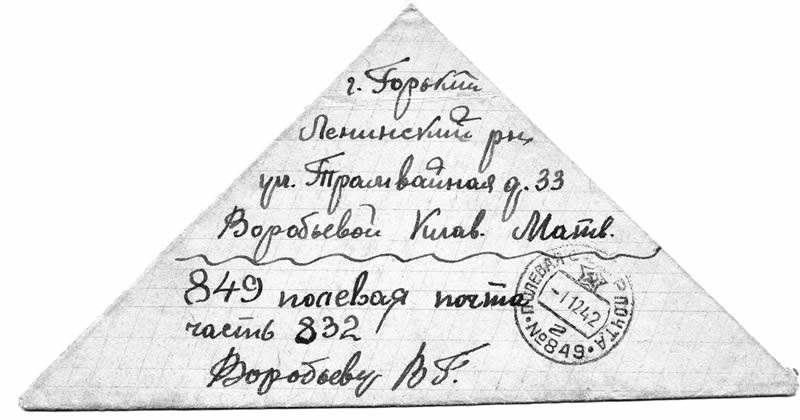 г. Горький
Ленинский рн
ул. Трамвайная д. 33
Воробьевой Клав. Матв.
849 полевая почта
часть 832
Воробьеву В Г.
ПОЛЕВАЯ ПОЧТА
-7 12 42
2
№849